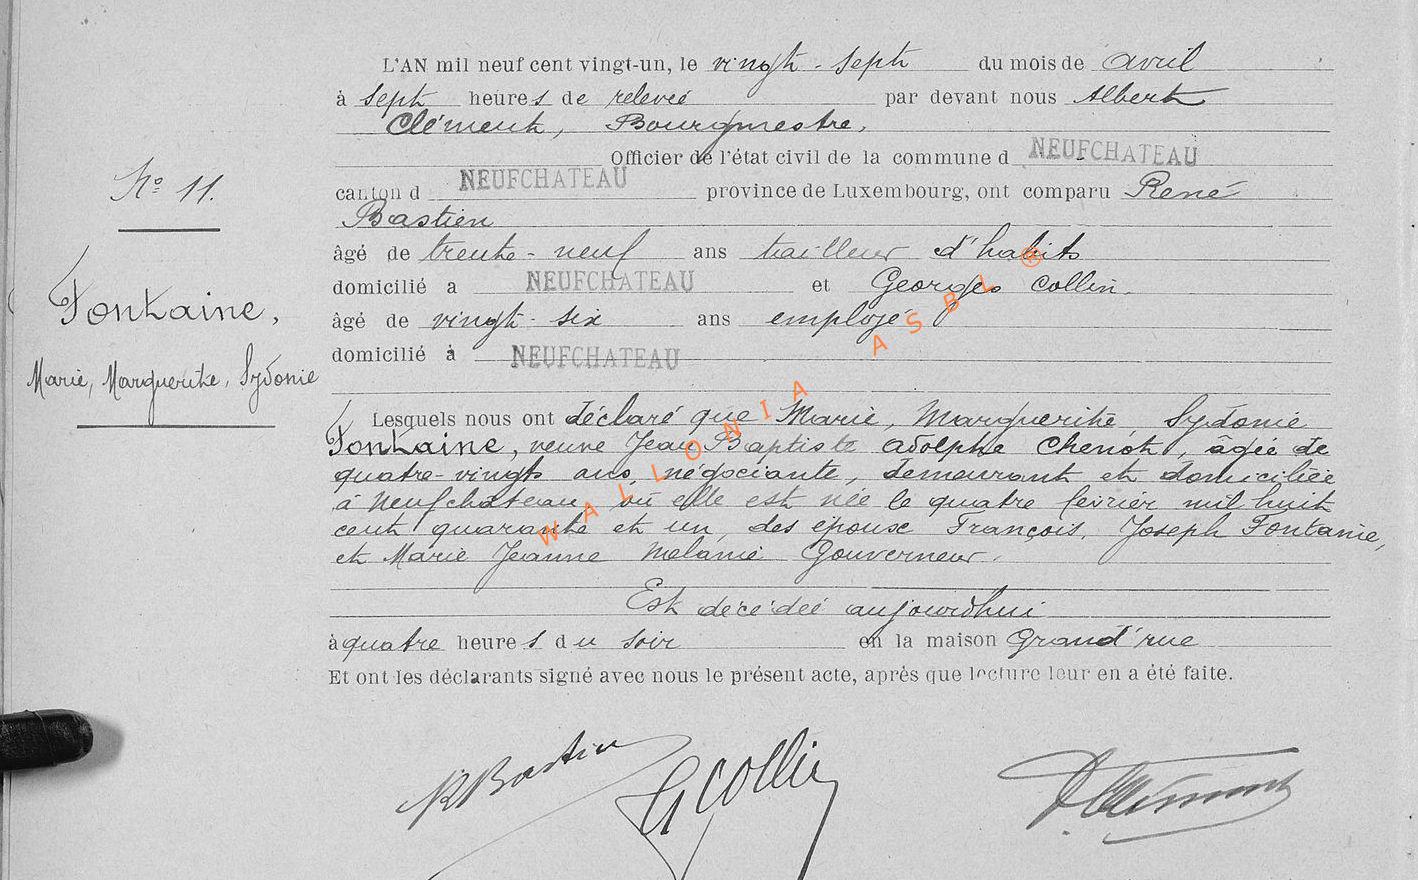 L'AN mil neuf cent vingt-un, le vingt-sept du mois de avril
à sept heures de relevée par devant nous Albert
Clément, Bourgmestre,
Officier de l'état civil de la commune d NEUFCHATEAU
canton d NEUFCHATEAU province de Luxembourg, ont comparu René
Bastien
âgé de trente-neuf ans tailleur d'habits
domicilié a NEUFCHATEAU et Georges Collin.
âgé de vingt-six ans employé
domicilié à NEUFCHATEAU
No 11.
Fontaine,
Marie, Marguerite, Sydonie
Lesquels nous ont déclaré que Marie, Marguerite, Sydonie
Fontaine, veuve Jean Baptiste Adolphe Chenot, âgée de
quatre-vingts ans, négociante, demeurant et domiciliée
à Neufchateau, où elle est née le quatre février mil huit
cent quarante et un, des époux François, Joseph Fontanie,
et Marie Jeanne Mélanie Gouverneur.
Est décédée aujourdhui
à quatre heures du soir en la maison Grand'rue
Et ont les déclarants signé avec nous le présent acte, après que lecture leur en a été faite.
RBastien GCollin AClément
WALLONIA ASBL ®